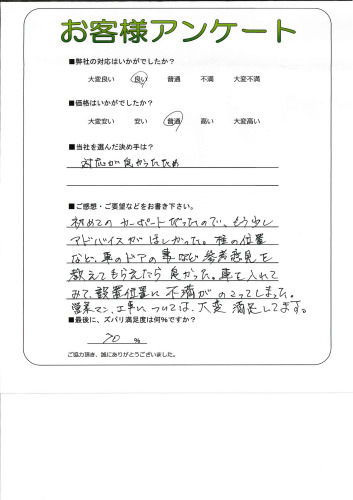 お客様アンケート
■弊社の対応はいかがでしたか?
大変良い 良い 普通 不満 大変不満
■価格はいかがでしたか?
大変安い 安い 普通 高い 大変高い
■当社を選んだ決め手は?
対応が良かったため
■ご感想・ご要望などをお書き下さい。
初めてのカーポートだったので、もう少し
アドバイスがほしかった。柱の位置
など、車のドアの事など参考意見を
教えてもらえたら良かった。車を入れて
みて、設置位置に不満がのこってしまった。
営業マン、工事については、大変満足してます。
■最後に、ズバリ満足度は何%ですか?
70 %
ご協力頂き、誠にありがとうございました。